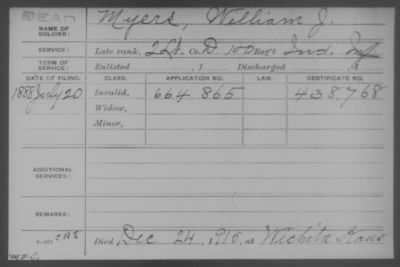 DEAD
NAME OF SOLDIER: Myers, William J.
SERVICE: Late rank, 2 Lt. Co. D Regt Ind. Inf
TERM OF SERVICE: Enlisted , 1 Discharged , 1
DATE OF FILING. CLASS. APPLICATION NO. LAW. CERTIFICATE NO.
1888 July 20 Invalid, 664,865 438,768
Widow,
Minor,
ADDITIONAL SERVICES:
REMARKS:
Died Dec 24, 1915, at Wichita Kans